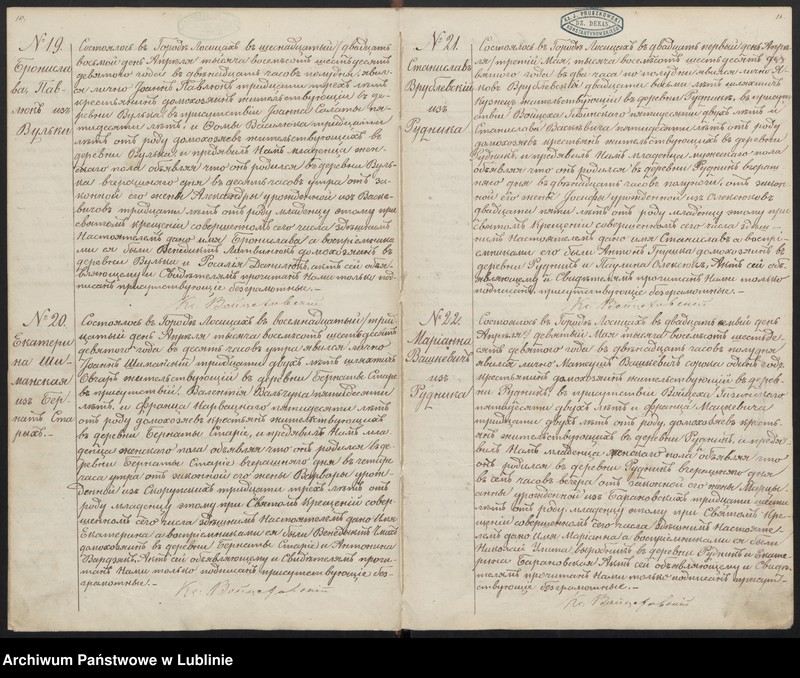 № 19.
Бронисла
ва, Пав-
люкъ изъ
Вульки
Состоялось въ Городѣ Лосицахъ въ шеснадцатый/двадцать
восьмой день Апрѣля тысяча восемьсотъ шестьдесятъ
девятого года въ двѣнадцать часовъ полудня, явил-
ся лично Іоаннъ Павлюкъ тридцати трехъ лѣтъ
крестьянинъ домохозяинъ жительствующій въ де-
ревни Вулька, въ присутствіи Іоанна Саматы пя-
тидесяти лѣтъ, и Василюка тридцати
лѣтъ отъ роду домохозяевъ жительствующихъ въ
деревни Вулька, и предъявилъ Намъ младенца жен-
скаго пола объявляя что онъ родился въ деревни Вуль-
ка вчерашняго дня въ десять часовъ утра отъ за-
конной его жены Александри урожденной изъ Васке-
вичовъ тридцати лѣтъ отъ роду, младенцу этому при
святомъ крещеніи совершенномъ сего числа здѣшнимъ
Настоятелемъ дано имя Бронислава а воспріемника-
ми ея были Венедиктъ Литвинюкъ домохозяинъ въ
деревни Вулька и Розалія Данилюкъ, актъ сей объя-
вляющему и Свидѣтелямъ прочитанъ Нами только под-
писанъ присутствующіе безграмотные.
Кс. Войцеховскій
№ 20.
Екатери
на Ши-
манская
изъ Бер-
натъ Ста
рыхъ.
Состоялось въ Городѣ Лосицахъ въ восемнадцатый/тридц-
цатый день Апрѣля тысяча восемьсотъ шестьдесятъ
девятого года въ десять часовъ утра явился лично
Іоаннъ Шиманскій тридцати двухъ лѣтъ шляхтичъ
Овчаръ жительствующій въ деревни Бернаты Старе
въ присутствіи Валентія Вальчука пятидесяти
лѣтъ, и Франца Карвацкаго пятидесяти лѣтъ
отъ роду домохозяевъ крестьянъ жительствующихъ
въ деревни Бернаты Старіе, и предъявилъ Намъ мла
денца женскаго пола объявляя что онъ родился въ де-
ревни Бернаты Старіе вчерашняго дня въ четыре
часа утра отъ законной его жены Варвары урож-
денной изъ Скорупскихъ тридцати трехъ лѣтъ отъ
роду младенцу этому при Святомъ Крещеніи совер-
шенномъ сего числа здѣшнимъ Настоятелемъ дано имя
Екатерина а воспріемниками ея были Венедиктъ
домохозяинъ въ деревни Бернаты Старіе и Антонина
Бардзякъ. Актъ сей объявляющему и Свидѣтелямъ прочи-
танъ Нами только подписанъ присутствующіе без-
грамотные.
Кс. Войцеховскій
X. J. PRUSZKOWSKI
DZ. DEKAN.
KONSTANTYNOWSKIEGO
№ 21.
Станиславъ
Врублевскій
изъ
Рудника
Состоялось въ Городѣ Лосицахъ въ двадцать первый день Апрѣ-
ля/третій Мая, тысяча восемьсотъ шестьдесятъ де-
вятого года въ два часа по полудни явился лично Я-
ковъ Врублевскій двадцати восьми лѣтъ шляхтичъ
Кузнецъ жительствующій въ деревни Рудникъ, въ присутс-
твіи Войцеха пятидесяти двухъ лѣтъ и
Станислава Васкевича пятидесяти лѣтъ отъ роду
домохозяевъ крестьянъ жительствующихъ въ деревни
Рудникъ, и предъявилъ Намъ младенца мужескаго пола
объявляя что онъ родился въ деревни Рудникъ вчераш-
няго дня въ двѣнадцать часовъ полуночи, отъ закон-
ной его жены Іосифы урожденной изъ Олексюковъ
двадцати пяти лѣтъ отъ роду младенцу этому при
святомъ Крещеніи совершенномъ сего числа здѣш-
нимъ Настоятелемъ дано имя Станиславъ а воспрі-
емниками его были Антонъ Грушка домохозяинъ въ
деревни Рудникъ и Марьяна Олексюкъ, Актъ сей объ-
являющему и Свидѣтелямъ прочитанъ Нами только
подписанъ, присутствующіе безграмотные.
Кс. Войцеховскій
№ 22.
Маріанна
Вашкевичъ
изъ
Рудника
Состоялось въ Городѣ Лосицахъ въ двадцать седмый день
Апрѣля/девятый Мая тысяча восемьсотъ шестьде-
сятъ девятого года въ двѣнадцать часовъ полудня
явился лично Матеушъ Вашкевичъ сорока одинъ годъ
крестьянинъ домохозяинъ жительствующій въ дерев-
ни Рудникъ, въ присутствіи Войцеха
пятидесяти двухъ лѣтъ и Франца Мацкевича
тридцати двухъ лѣтъ отъ роду, домохозяевъ кресть-
янъ жительствующихъ въ деревни Рудникъ, и предъя-
вилъ Намъ младенца женскаго пола объявляя что
онъ родился въ деревни Рудникъ вчерашняго дня
въ семь часовъ вечера отъ законной его жены Марцы-
анны урожденной изъ Барановскихъ тридцати
лѣтъ отъ роду, младенцу этому при Святомъ Кре-
щеніи совершенномъ сего числа здѣшнимъ Настояте-
лемъ дано имя Маріанна а воспріемниками ея были
Николай въ деревни Рудникъ и Екате-
рина Барановская Актъ сей объявляющему и Свидѣ-
телямъ прочитанъ Нами только подписанъ присутс-
твующіе безграмотные.
Кс. Войцеховскій
Archiwum Państwowe w Lublinie